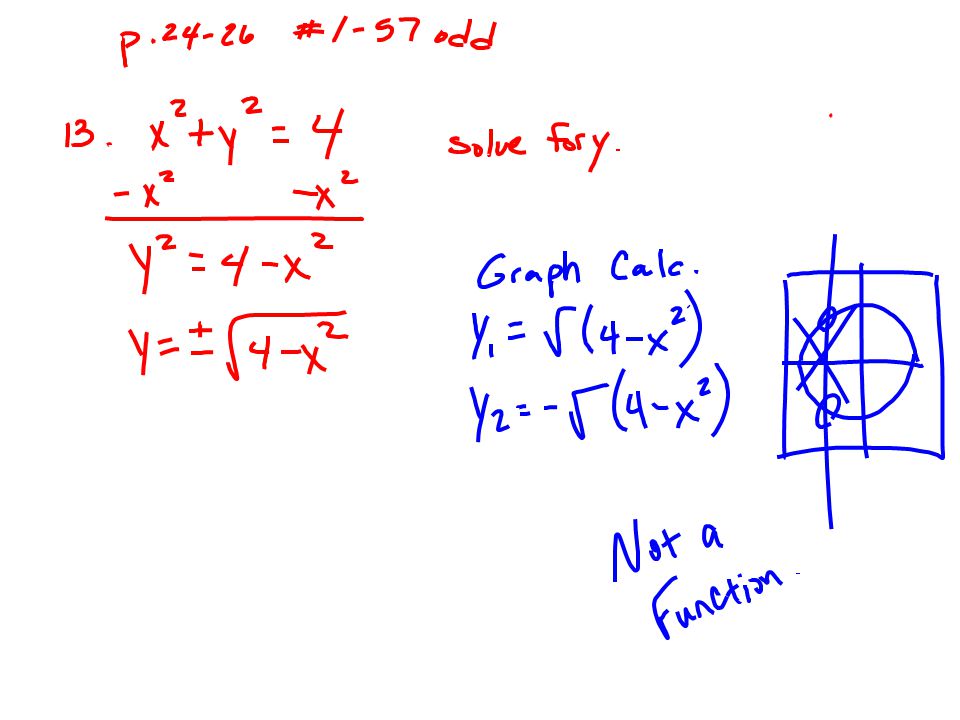 p.24-26 #1-57 odd
13. x² + y² = 4 solve for y.
- x² - x²
y² = 4 - x²
y = ± √4 - x²
Graph Calc.
y₁ = √(4 - x²)
y₂ = -√(4 - x²)
Not a
Function.